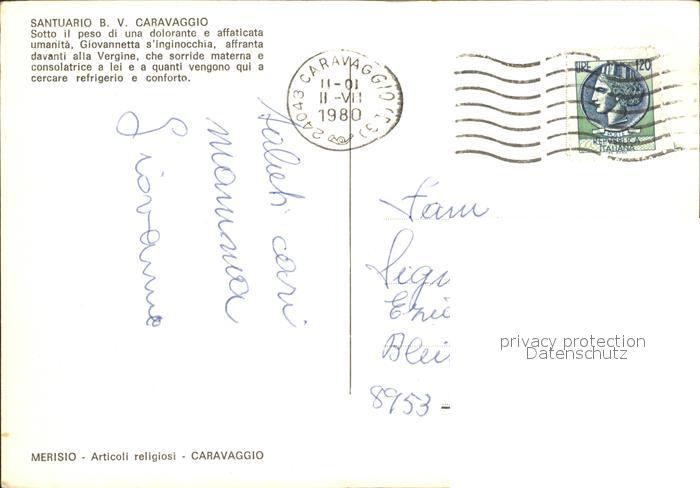 SANTUARIO B. V. CARAVAGGIO
Sotto il peso di una dolorante e affaticata
umanità, Giovannetta s'inginocchia, affranta
davanti alla Vergine, che sorride materna e
consolatrice a lei e a quanti vengono qui a
cercare refrigerio e conforto.
24043 CARAVAGGIO
11-01
11-VII
1980
LIRE 120
REPUBBLICA
ITALIANA
Saluti cari
mamma
Giovanna
Fam
8953 -
privacy protection
Datenschutz
MERISIO - Articoli religiosi - CARAVAGGIO